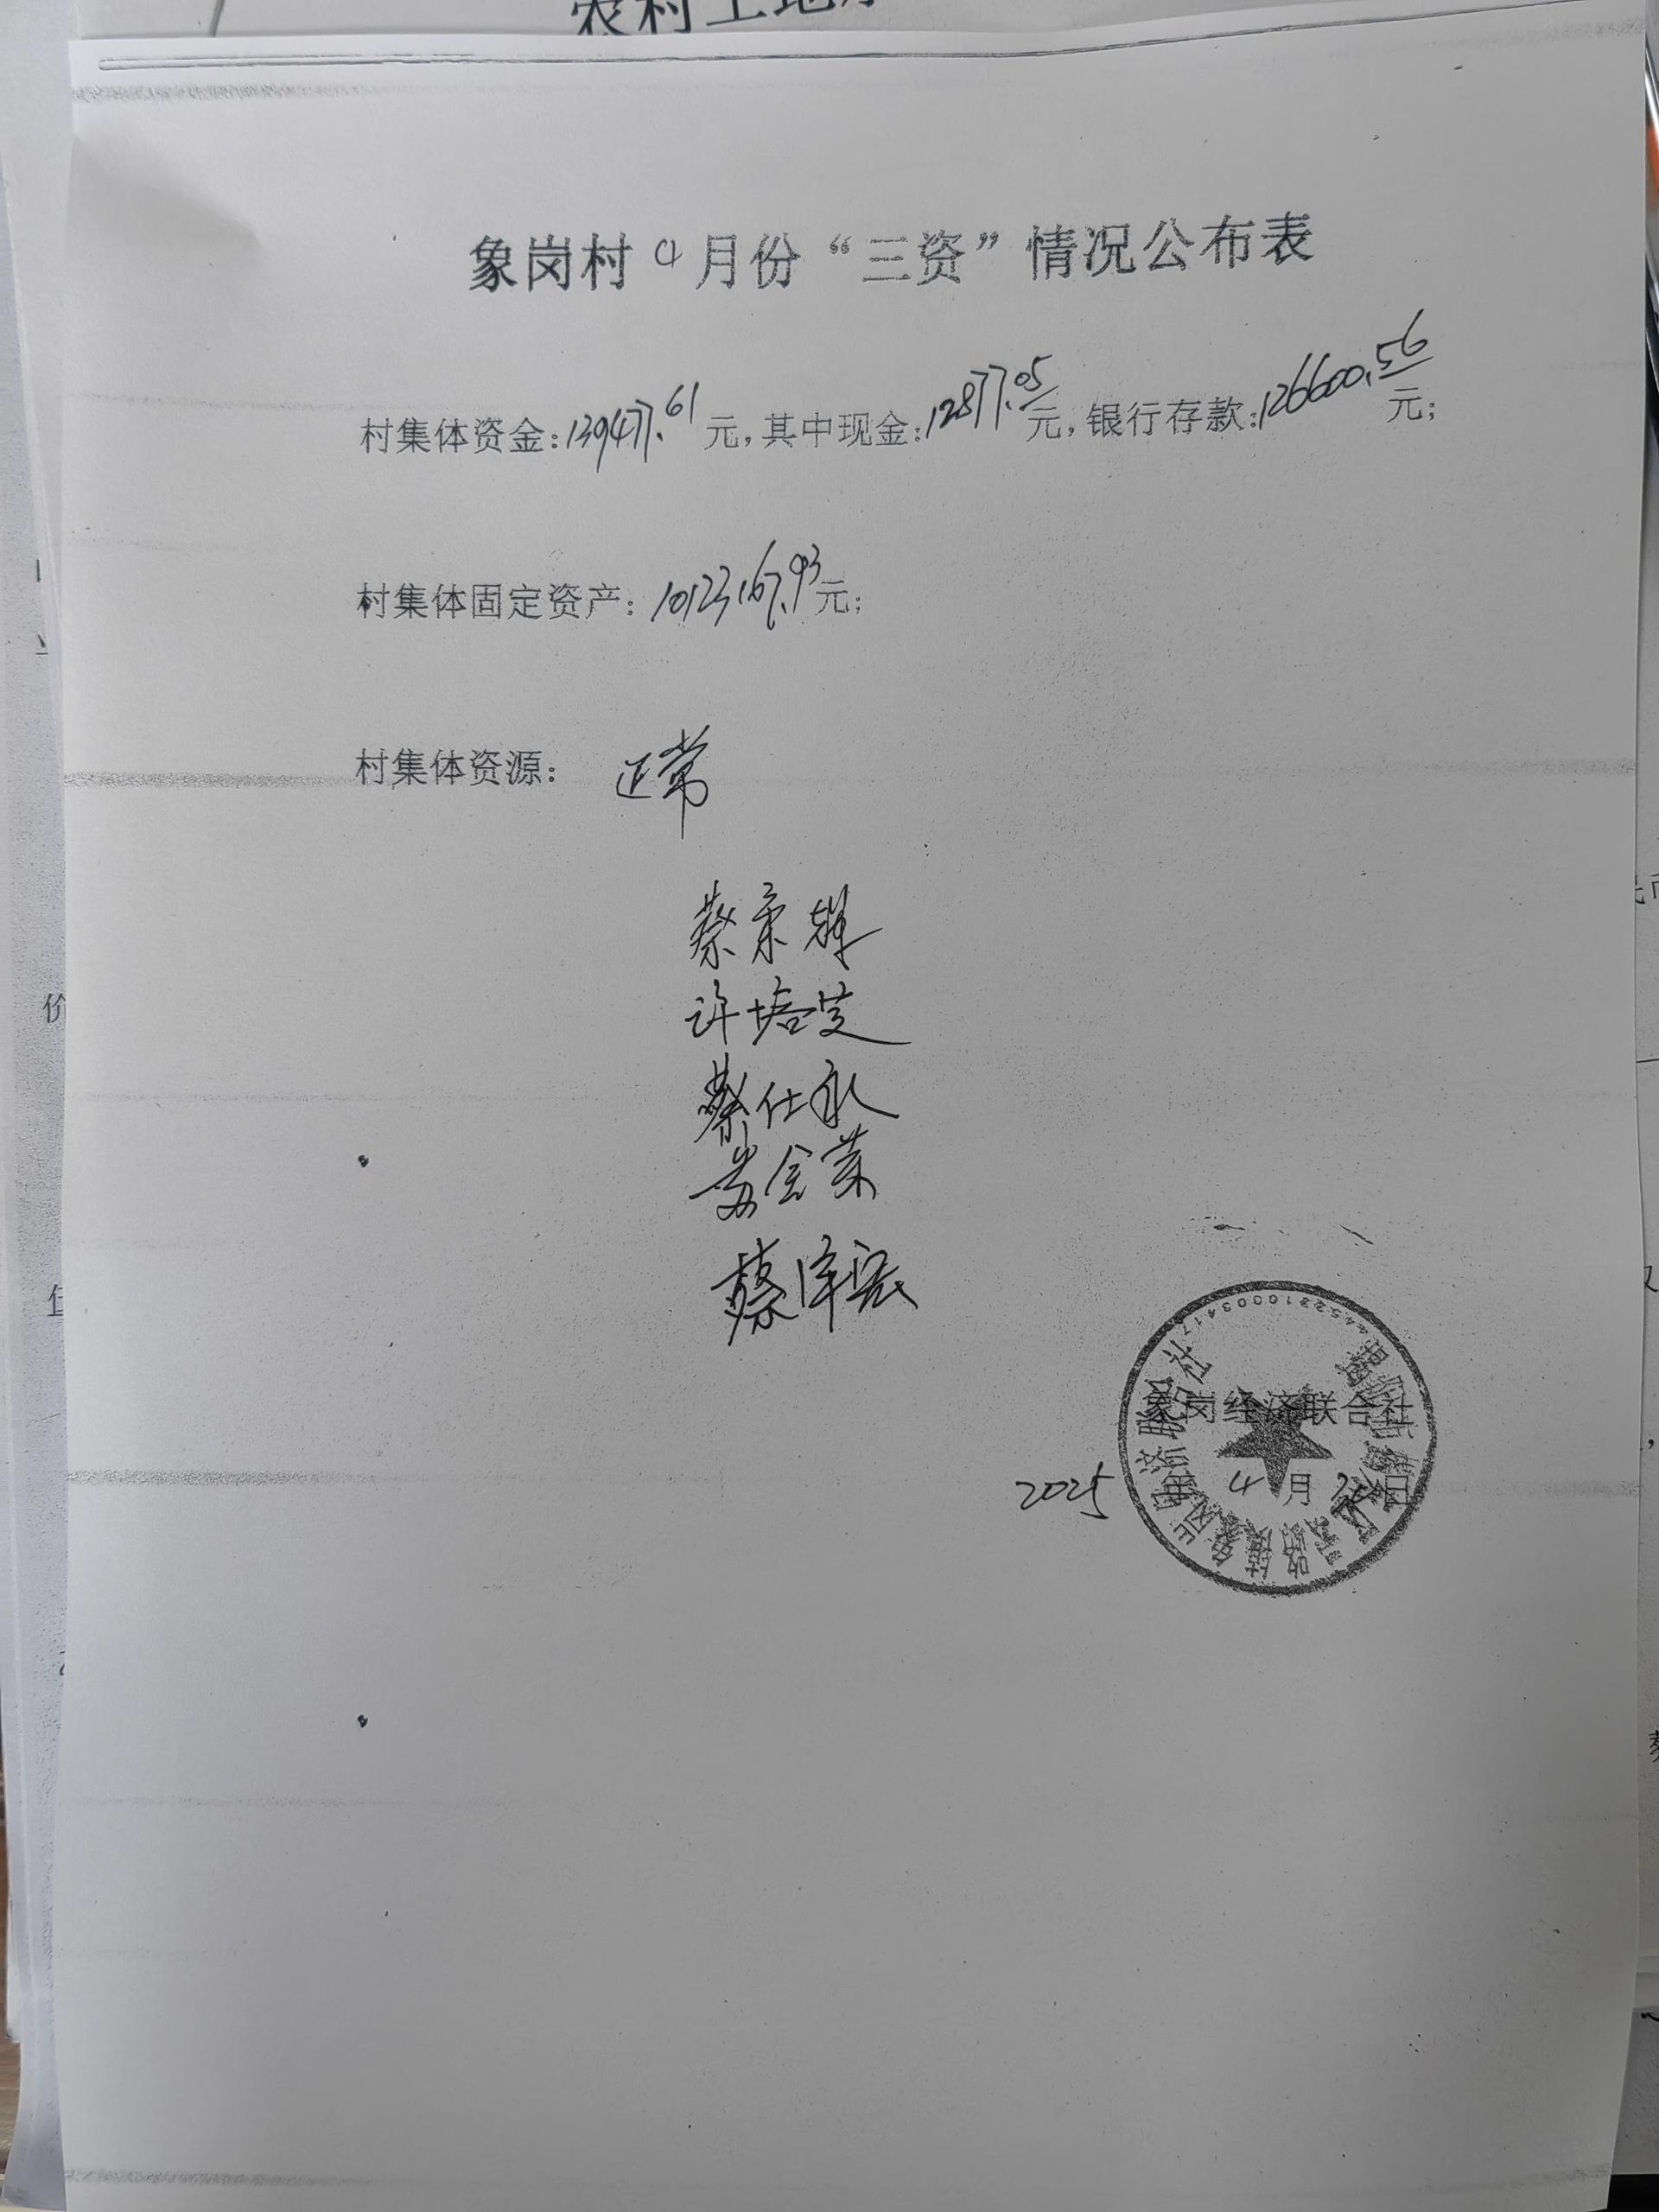 象岗村4月份“三资”情况公布表
村集体资金:139477.61元,其中现金:12877.05元,银行存款:126600.56元;
村集体固定资产:10123167.93元;
村集体资源: 正常
蔡荣辉
许培芝
蔡仕永
黄会荣
蔡泽宏
象岗经济联合社
2025年4月 日
4452810003417